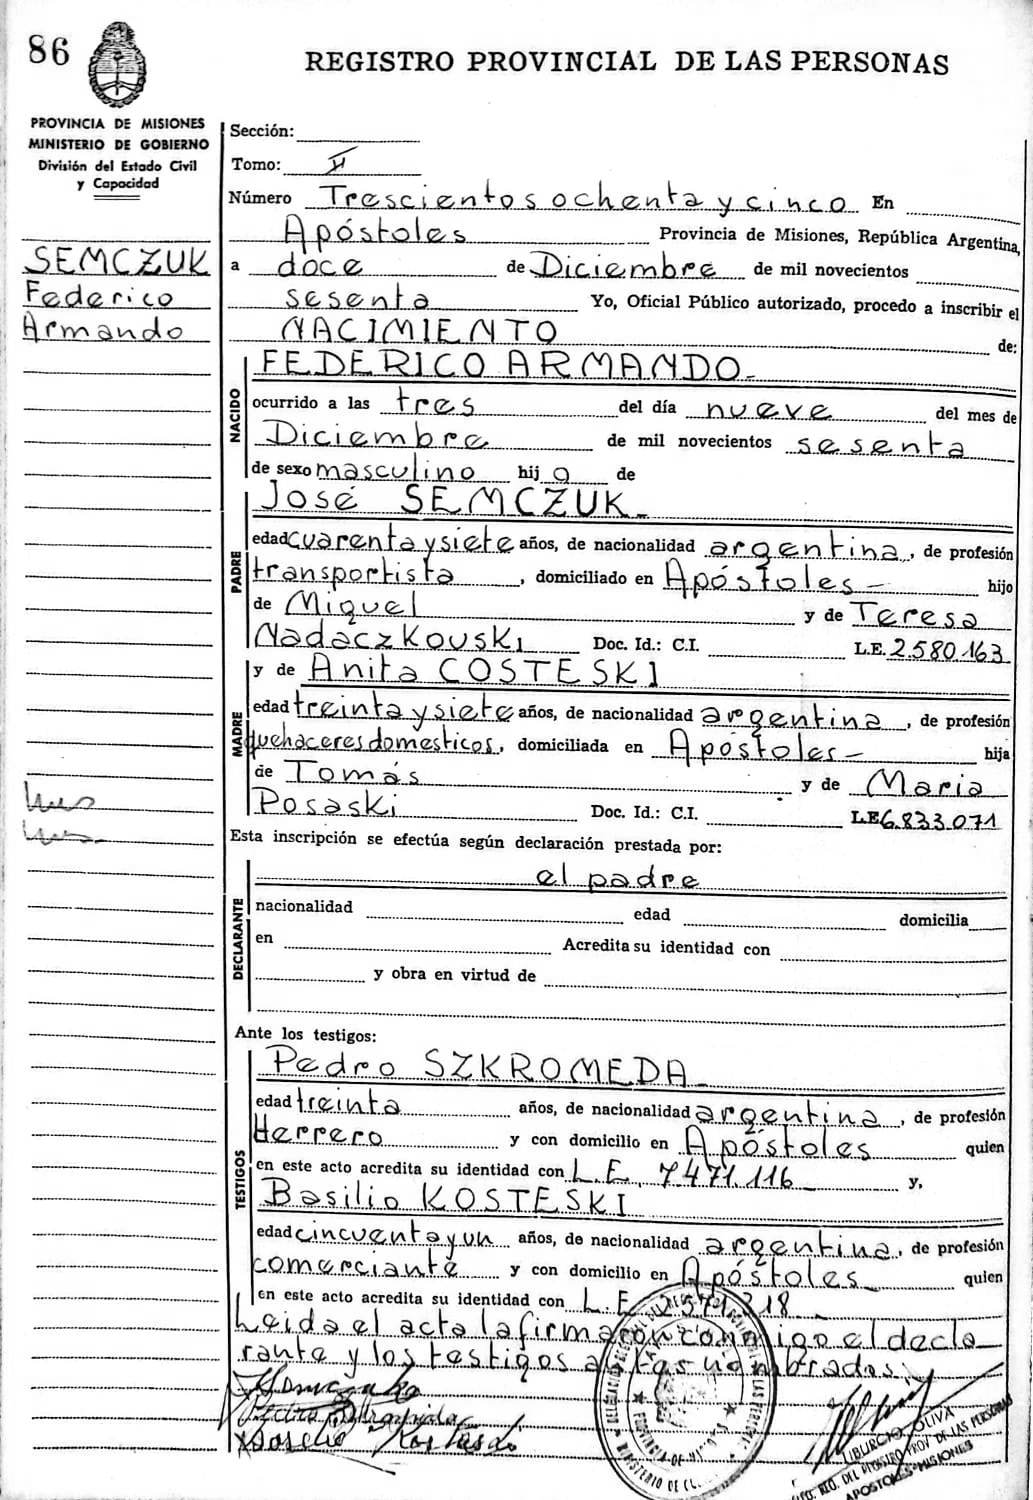 86
REGISTRO PROVINCIAL DE LAS PERSONAS
PROVINCIA DE MISIONES
MINISTERIO DE GOBIERNO
División del Estado Civil
y Capacidad
SEMCZUK
Federico
Armando
Sección:
Tomo: II
Número Trescientos ochenta y cinco En
Apóstoles Provincia de Misiones, República Argentina,
a doce de Diciembre de mil novecientos
sesenta Yo, Oficial Público autorizado, procedo a inscribir el
NACIMIENTO de:
FEDERICO ARMANDO
NACIDO
ocurrido a las tres del día nueve del mes de
Diciembre de mil novecientos sesenta
de sexo masculino hijo de
José SEMCZUK
PADRE
edad cuarenta y siete años, de nacionalidad argentina, de profesión
transportista, domiciliado en Apóstoles hijo
de Miguel y de Teresa
Nadaczkouski Doc. Id.: C.I. L.E. 2.580.163
y de Anita COSTESKI
MADRE
edad treinta y siete años, de nacionalidad argentina, de profesión
quehaceres domesticos, domiciliada en Apóstoles hija
de Tomás y de Maria
Posaski Doc. Id.: C.I. L.E 6.833.071
Esta inscripción se efectúa según declaración prestada por:
el padre
DECLARANTE
nacionalidad edad domicilia
en Acredita su identidad con
y obra en virtud de
Ante los testigos:
Pedro SZKROMEDA
TESTIGOS
edad treinta años, de nacionalidad argentina, de profesión
Herrero y con domicilio en Apóstoles quien
en este acto acredita su identidad con L.E. 7.471.116 y,
Basilio KOSTESKI
edad cincuenta y un años, de nacionalidad argentina, de profesión
comerciante y con domicilio en Apóstoles quien
en este acto acredita su identidad con L.E. 318
Leida el acta la firmaron conmigo el decla
rante y los testigos antes nombrados.
OLIVA
REG. DEL REGISTRO PROV DE LAS PERSONAS
APOSTOLES-MISIONES